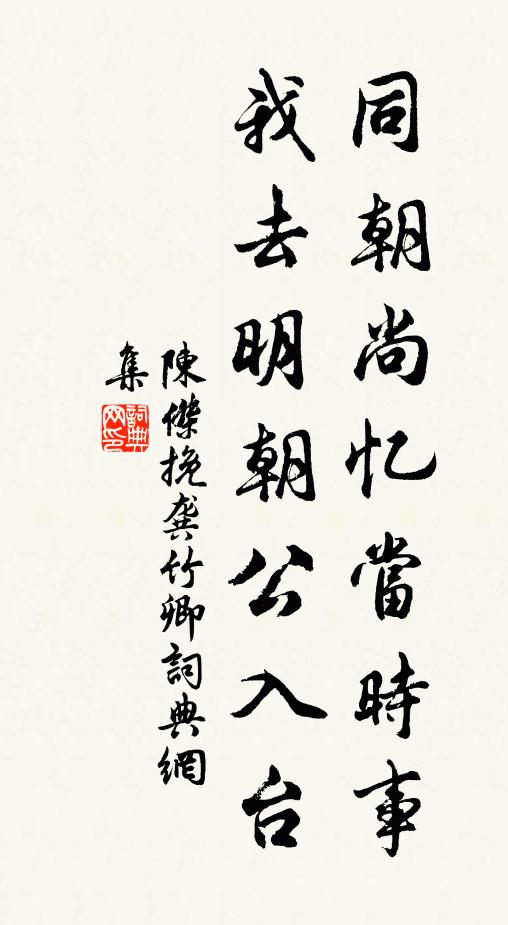 同朝尚忆當時事
我去明朝公入台
陳傑挽龔竹卿詞典網
集
詞典
网印